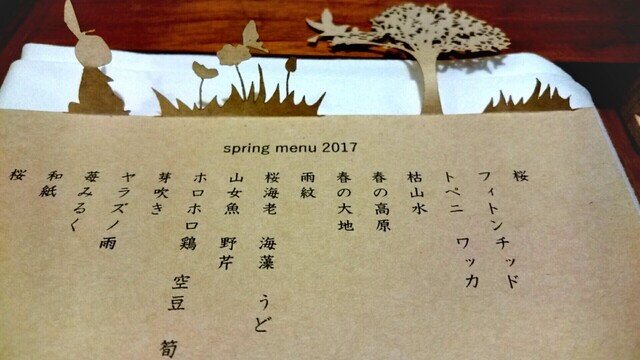 spring menu 2017
桜
フィトンチッド
トペニ　ワッカ
枯山水
春の高原
春の大地
雨紋
桜海老　海藻　うど
山女魚　野芹
ホロホロ鶏　空豆　筍
芽吹き
ヤラズノ雨
苺みるく
和紙
桜